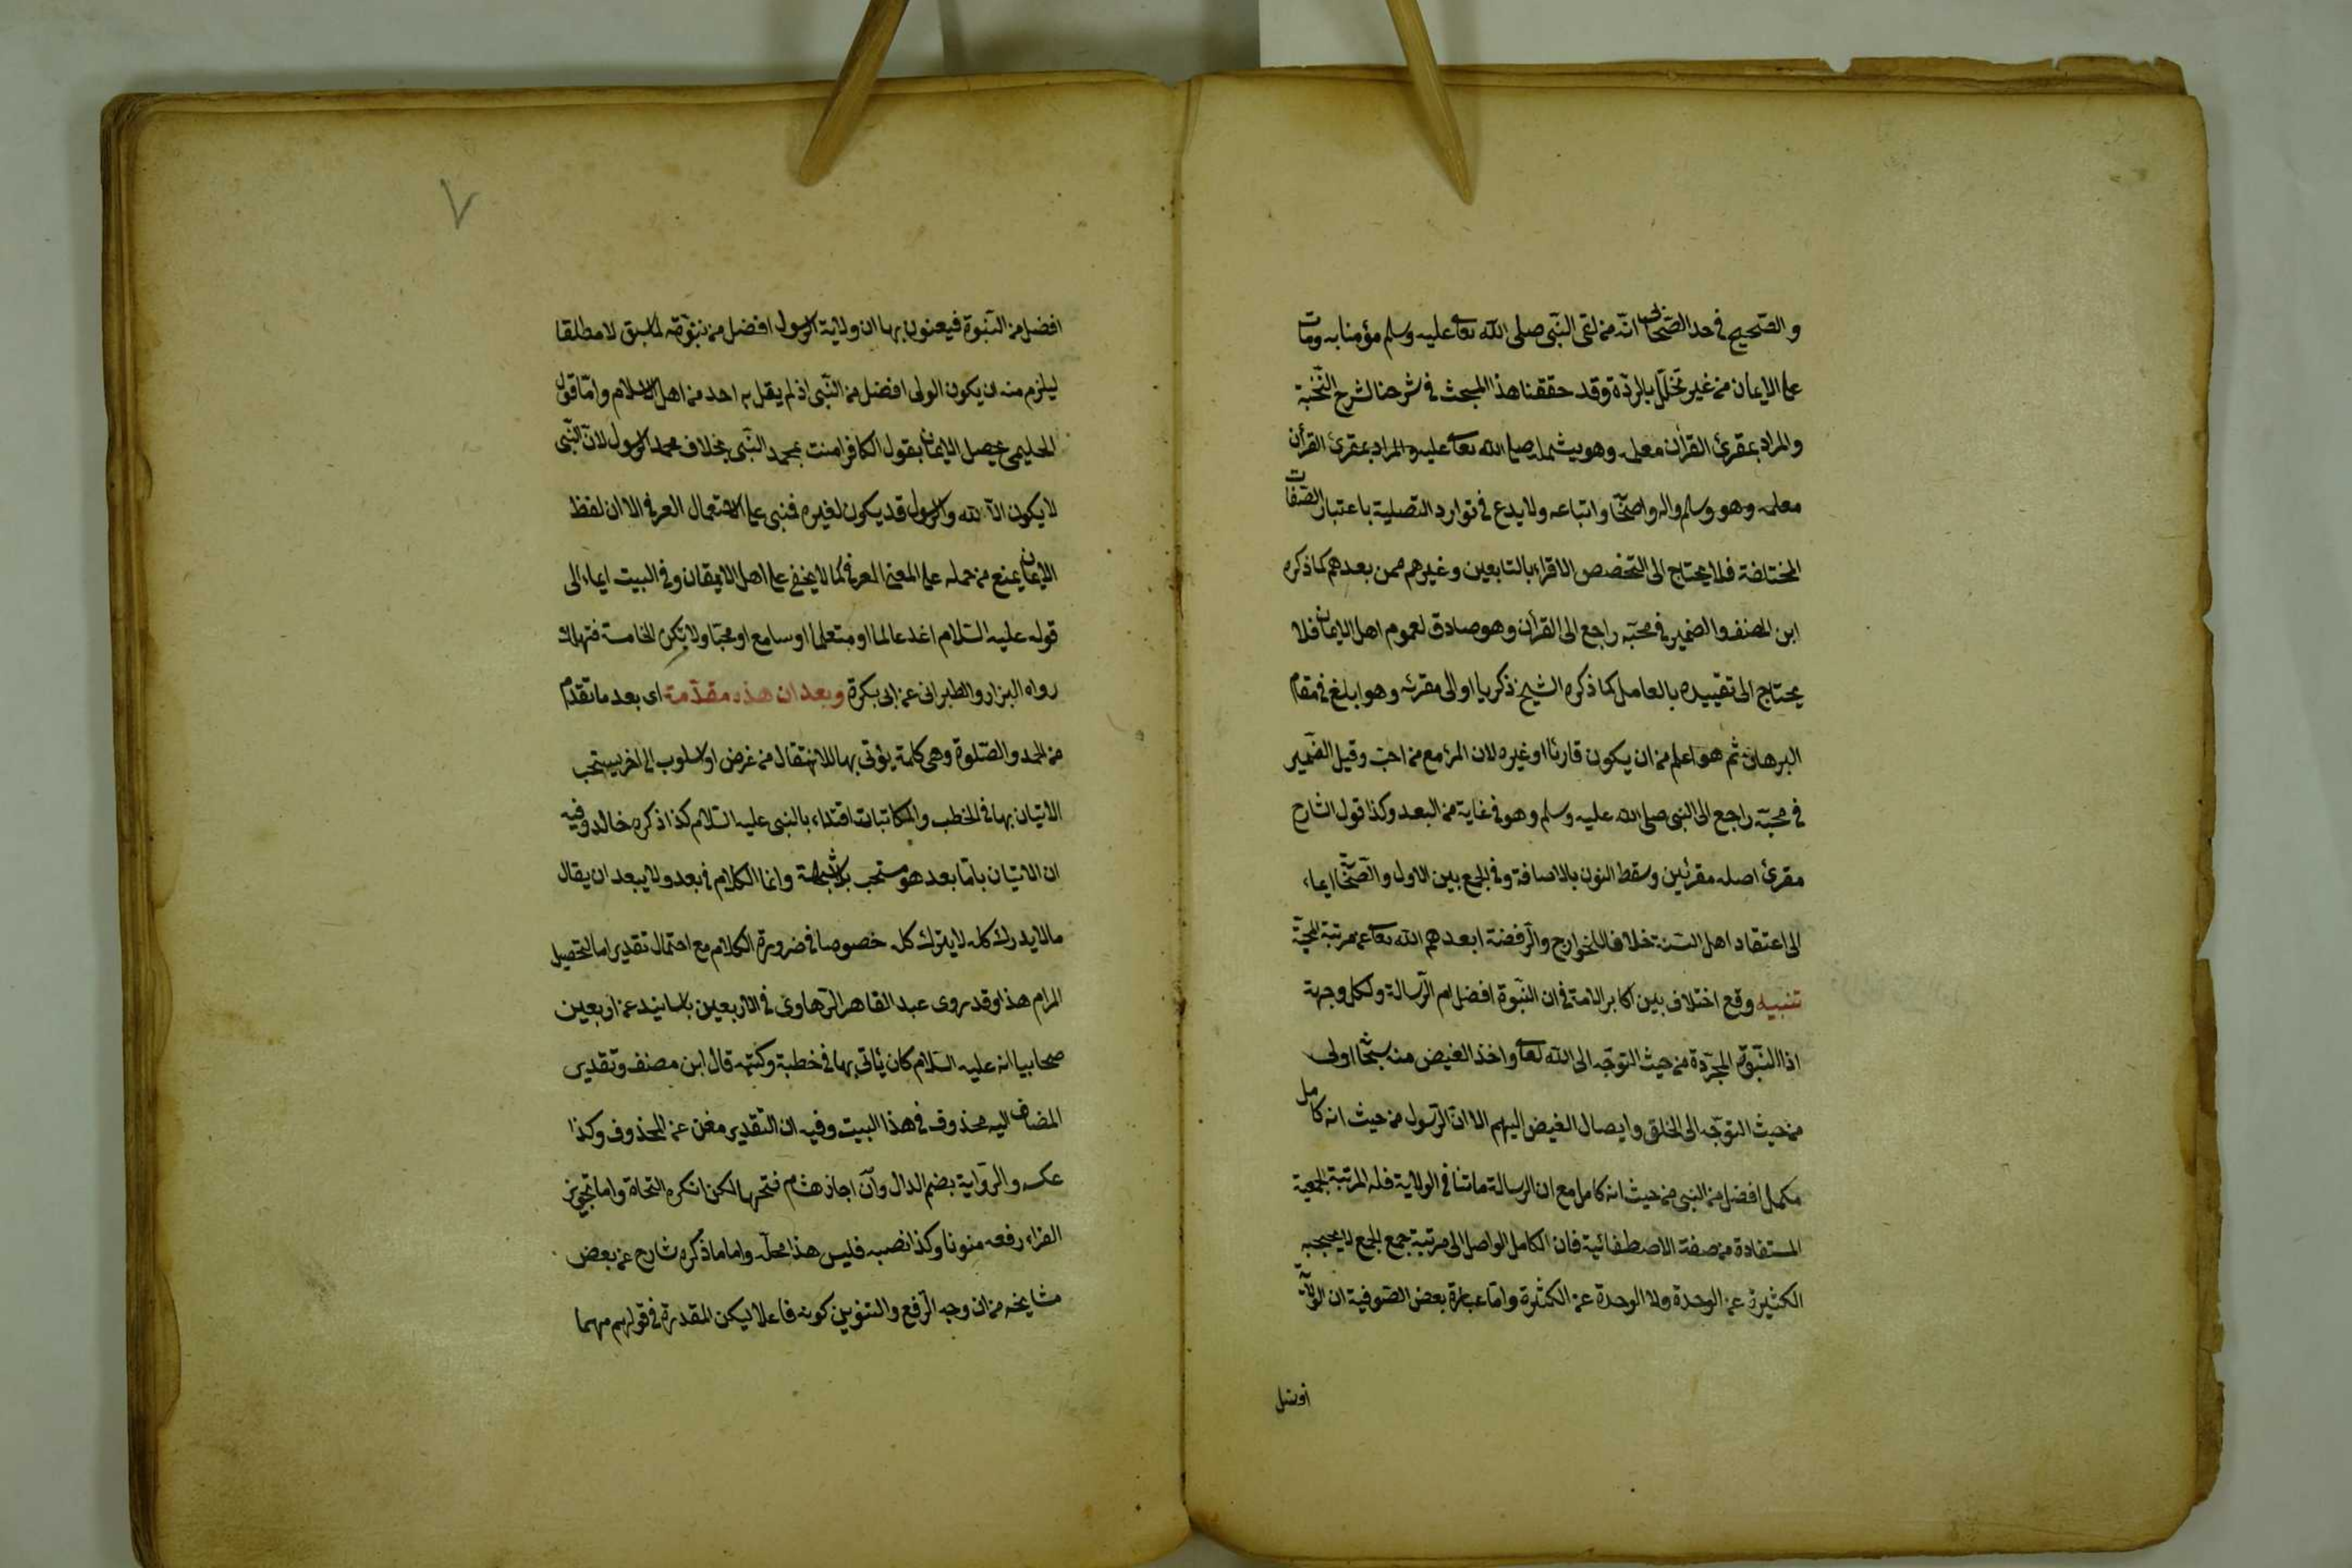 والصحيح في حد الصحابي انه من لقى النبي صلى الله تعالى عليه وسلم مؤمنا به ومات
على الايمان من غير تخلل بالردة وقد حققنا هذا المبحث في شرحنا لشرح النخبة
والمراد بمقرئ القرأن معلمه وهو يشمله صلى الله تعالى عليه والمراد بمقرئ القرأن
معلمه وهو وسلم واله واصحابه واتباعه ولا بدع في توارد التصلية باعتبار الصفات
المختلفة فلا يحتاج الى التخصص الاقراء بالتابعين وغيرهم ممن بعدهم كما ذكره
ابن المصنف والضمير في محبه راجع الى القرأن وهو صادق لعموم اهل الايمان فلا
يحتاج الى تقييده بالعامل كما ذكره الشيخ زكريا او الى مقرئه وهو ابلغ في مقام
البرهان ثم هو اعلم من ان يكون قارئا او غيره لان المرء مع من احب وقيل الضمير
في محبه راجع الى النبي صلى الله عليه وسلم وهو في غاية من البعد وكذا قول الشارح
مقرئ اصله مقرئين وسقط النون بالاضافة وفي الجمع بين الاول والصحابة ايماء
الى اعتقاد اهل السنة خلافا للخوارج والرفضة ابعدهم الله تعالى عن مرتبة المحبة
تنبيه وقع اختلاف بين اكابر الامة في ان النبوة افضل ام الرسالة ولكل وجهة
اذا النبوة المجردة من حيث التوجه الى الله تعالى واخذ الفيض منه اولى
من حيث التوجه الى الخلق وايصال الفيض اليهم الا ان الرسول من حيث انه كامل
مكمل افضل من النبي من حيث انه كامل مع ان الرسالة ما تنافي الولاية فله المرتبة الجمعية
المستفادة من صفة الاصطفائية فان الكامل الواصل الى مرتبة جمع الجمع لا يحجبه
الكثيرة عن الوحدة ولا الوحدة عن الكثرة واما عبارة بعض الصوفية ان الولاية
افضل
٧
افضل من النبوة فيعنون بها ان ولاية الرسول افضل من نبوته لما سبق لا مطلقا
ليلزم منه ان يكون الولى افضل من النبي اذ لم يقل به احد من اهل الاسلام واما قول
الحليمي يحصل الايمان بقول الكافر امنت بمحمد النبي بخلاف محمد الرسول لان النبي
لا يكون الا لله والرسول قد يكون لغيره فبنى على الاستعمال العرفي الا ان لفظ
الايمان يمنع من حمله على المعنى العرفي كما لا يخفى على اهل الايقان وفي البيت ايماء الى
قوله عليه السلام اغد عالما او متعلما او سامع او محبا ولا تكن الخامسة فتهلك
رواه البزار والطبراني عن ابى بكرة وبعد ان هذه مقدمة اى بعد ما تقدم
من الحمد والصلوة وهى كلمة يؤتى بها للانتقال من غرض او اسلوب الى اخر يستحب
الاتيان بها في الخطب والمكاتبات اقتداء بالنبي عليه السلام كذا ذكره خالد وفيه
ان الاتيان باما بعد هو مستحب بلا شبهة وانما الكلام في بعد ولا يبعد ان يقال
ما لا يدرك كله لا يترك كله خصوصا في ضرورة الكلام مع احتمال تقدير اما لتحصيل
المرام هذا وقد روى عبد القاهر الرهاوى في الاربعين باسانيد عن اربعين
صحابيا انه عليه السلام كان يأتى بها في خطبة وكتبه قال ابن مصنف وتقدير
المضاف اليه محذوف في هذا البيت وفيه ان التقدير مغن عن المحذوف وكذا
عكسه والرواية بضم الدال وان اجاز هشام فتحها لكن انكره النحاة واما تجويز
الفراء رفعه منونا وكذا نصبه فليس هذا محله واما ما ذكره شارح عن بعض
مشايخه من ان وجه الرفع والتنوين كونه فاعلا ليكن المقدرة في قولهم مهما